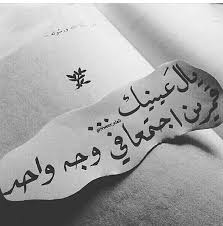 يال عينيك...
قمرين اجتمعا في وجه واحد